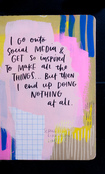 I go onto
Social Media &
GET so inspired
to MAKE all the
THINGS... But then
I end up DOING
NOTHING
at all.